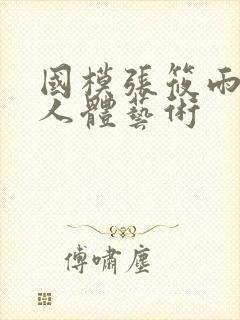 國模張筱雨
人體藝術
傅嘯塵